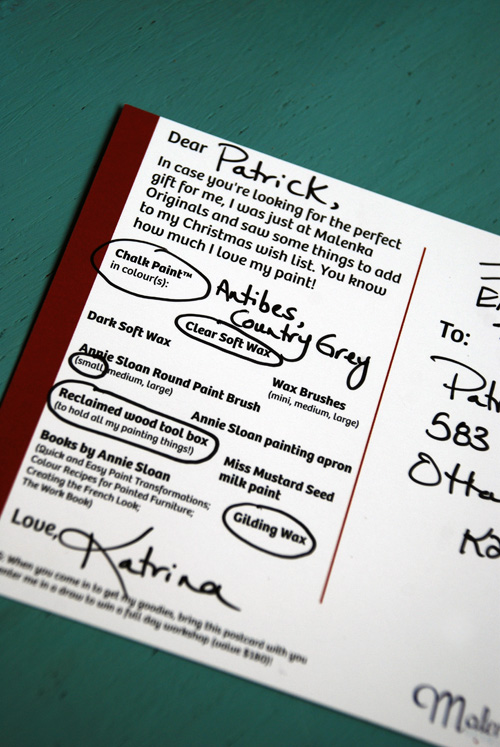 Dear Patrick,
In case you're looking for the perfect
gift for me, I was just at Malenka
Originals and saw some things to add
to my Christmas wish list. You know
how much I love my paint!
Chalk Paint™
in colour(s):
Antibes,
Country Grey
Dark Soft Wax
Clear Soft Wax
Annie Sloan Round Paint Brush
(small, medium, large)
Wax Brushes
(mini, medium, large)
Reclaimed wood tool box
(to hold all my painting things!)
Annie Sloan painting apron
Books by Annie Sloan
(Quick and Easy Paint Transformations;
Colour Recipes for Painted Furniture;
Creating the French Look;
The Work Book)
Miss Mustard Seed
milk paint
Gilding Wax
Love, Katrina
When you come in to get my goodies, bring this postcard with you
enter me in a draw to win a full day workshop (value $180)!
To:
583